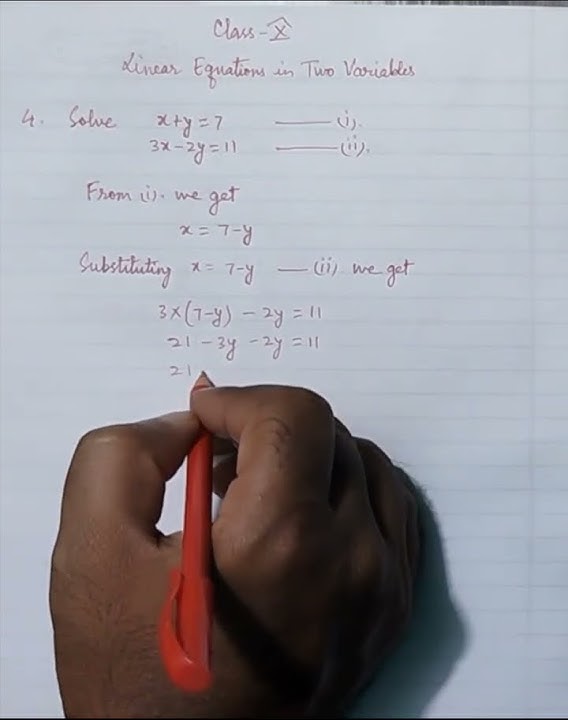 Class-X
Linear Equations in Two Variables
4. Solve x+y=7 —— (i).
3x-2y=11 —— (ii).
From (i). we get
x = 7-y
Substituting x = 7-y — (ii) we get
3×(7-y) - 2y = 11
21 - 3y - 2y = 11
21